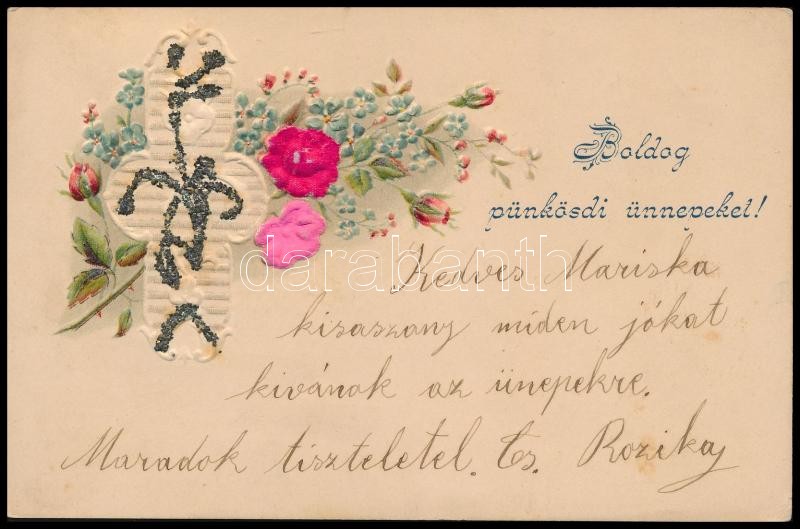 Boldog
pünkösdi ünnepeket!
Kedves Mariska
kisaszony miden jókat
kivánok az ünepekre.
Maradok tiszteletel. Cs. Rozika
darabanth